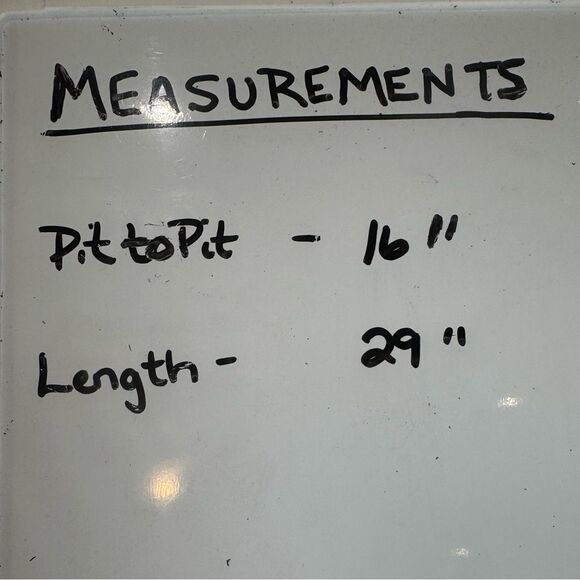 MEASUREMENTS
Pit to Pit - 16"
Length - 29"